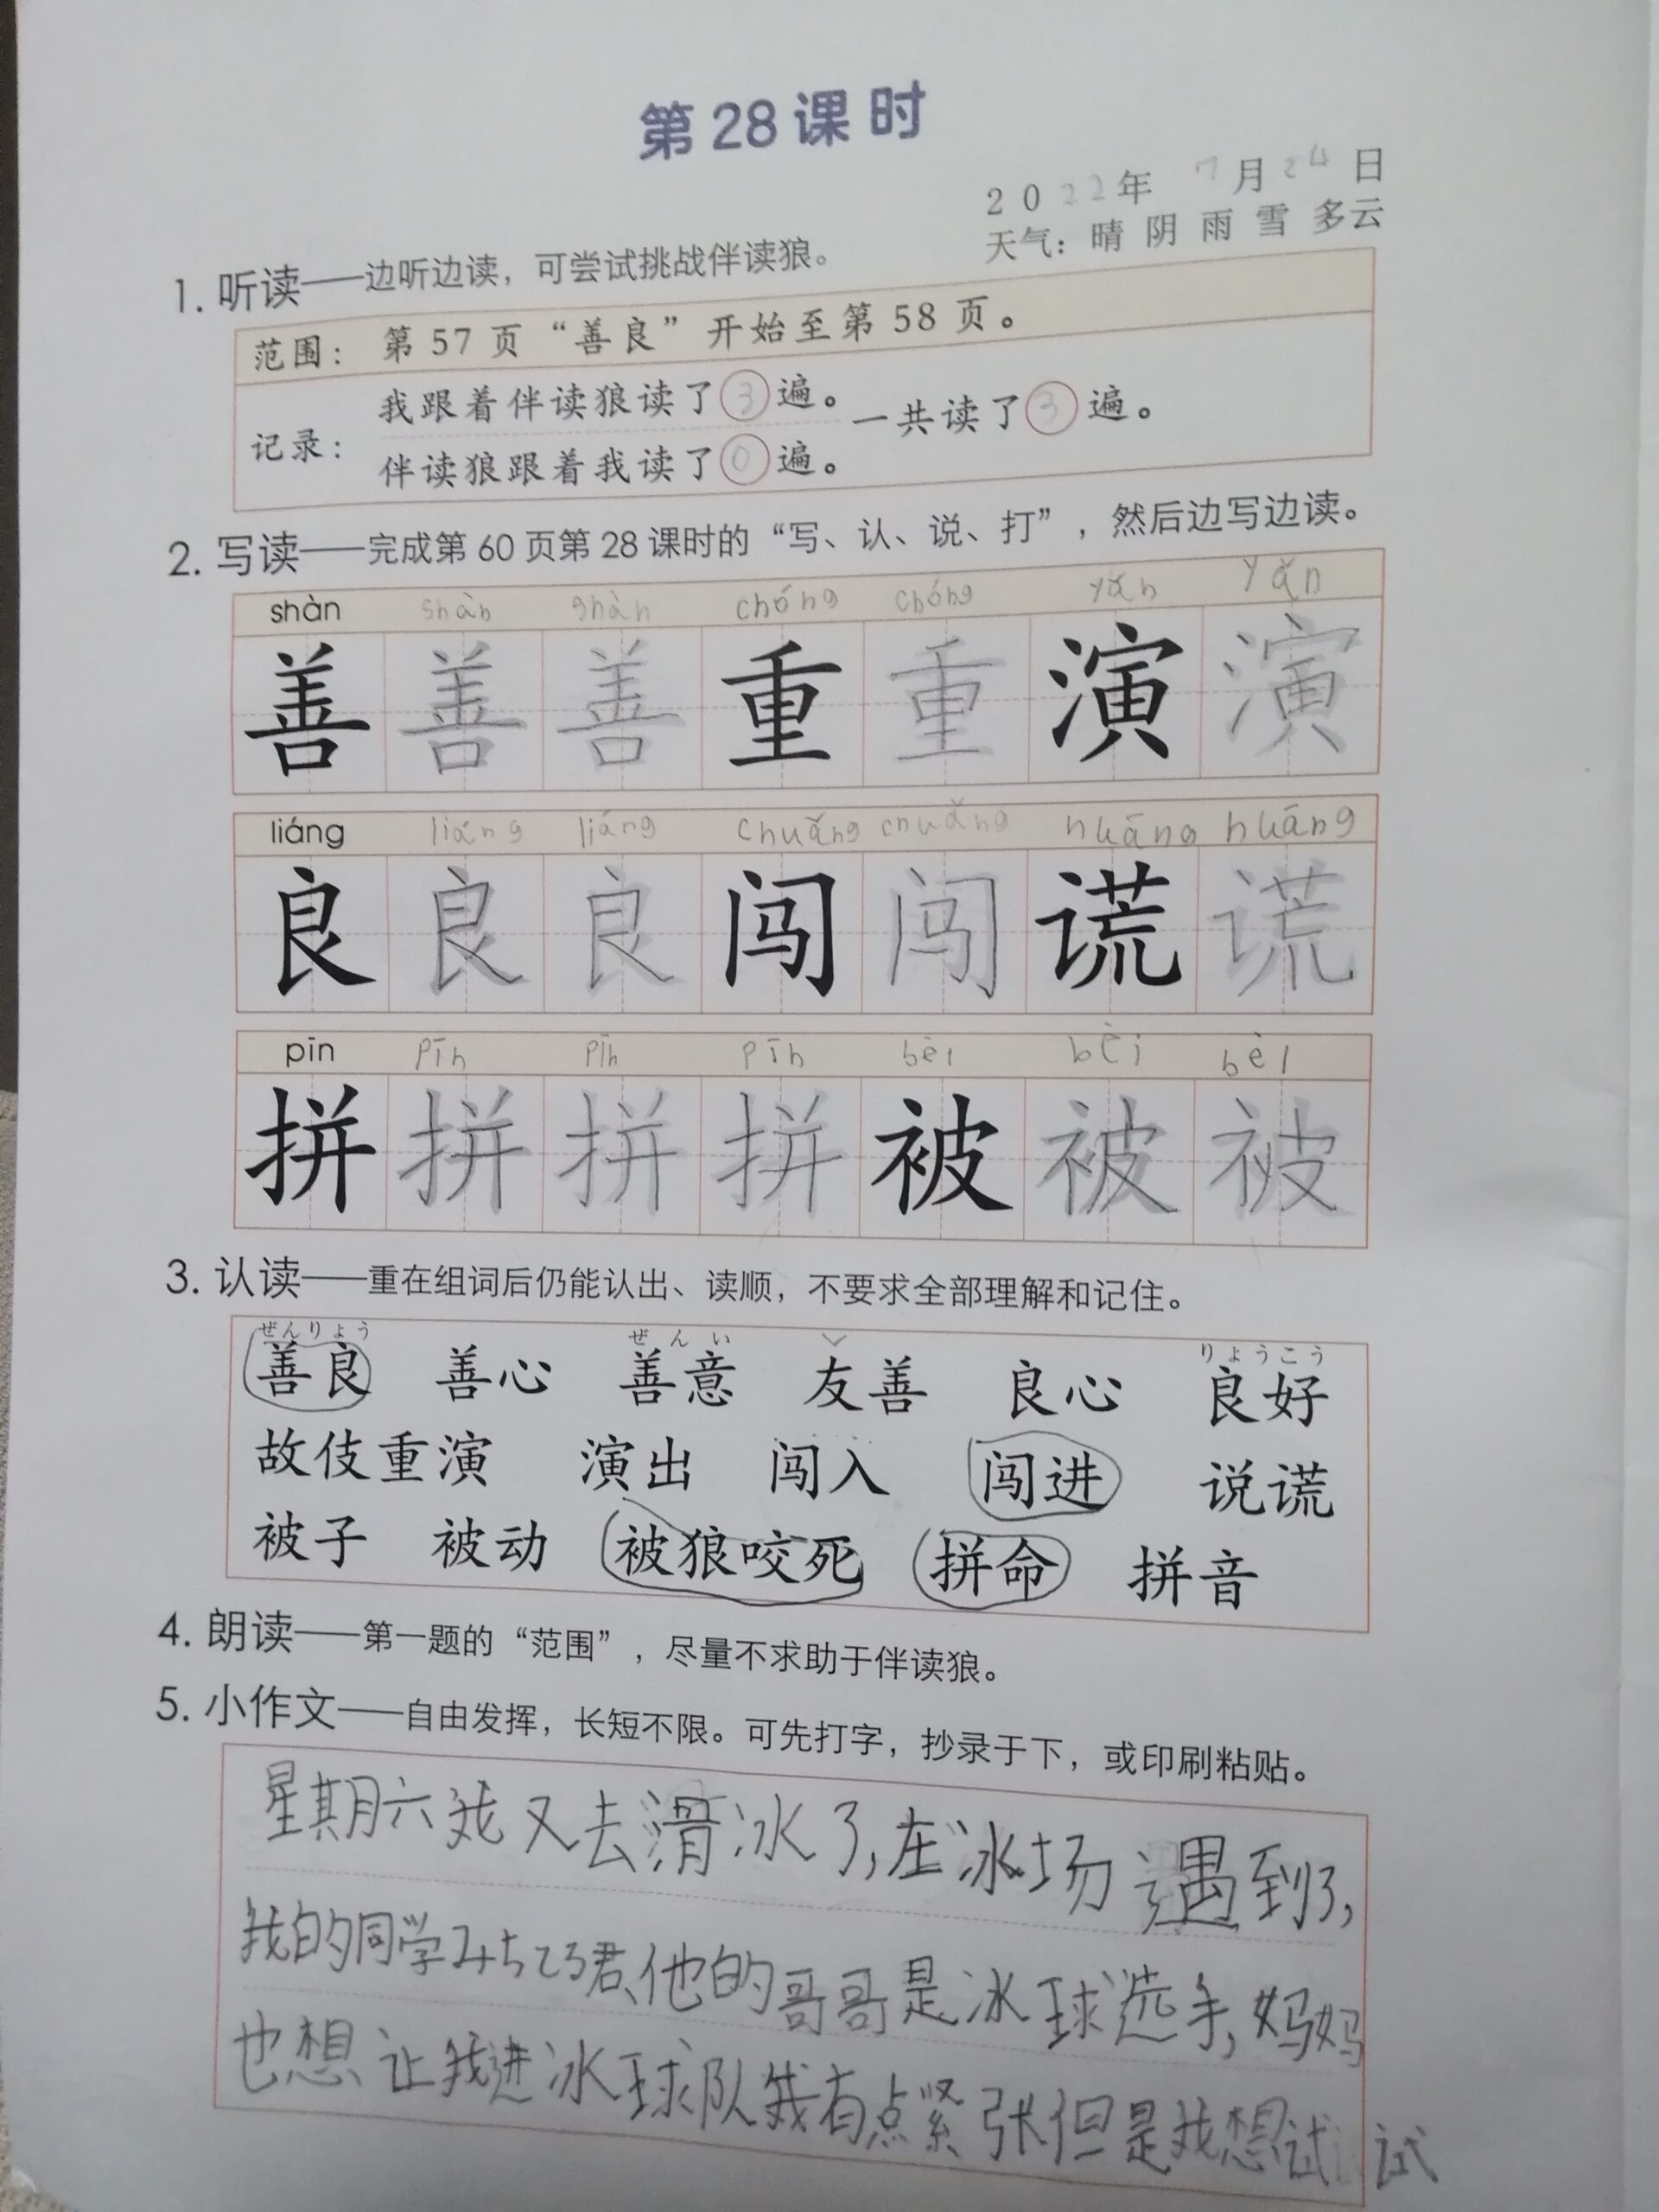 第28课时
2022年 7月24日
天气：晴 阴 雨 雪 多云
1. 听读——边听边读，可尝试挑战伴读狼。
范围： 第57页“善良”开始至第58页。
记录： 我跟着伴读狼读了3遍。 一共读了3遍。
伴读狼跟着我读了0遍。
2. 写读——完成第60页第28课时的“写、认、说、打”，然后边写边读。
shàn shàn shàn chóng chóng yǎn yǎn
善 善 善 重 重 演 演
liáng liáng liáng chuǎng chuǎng huǎng huǎng
良 良 良 闯 闯 谎 谎
pīn pīn pīn pīn bèi bèi bèi
拼 拼 拼 拼 被 被 被
3. 认读——重在组词后仍能认出、读顺，不要求全部理解和记住。
ぜんりょう ぜんい りょうこう
善良 善心 善意 友善 良心 良好
故伎重演 演出 闯入 闯进 说谎
被子 被动 被狼咬死 拼命 拼音
4. 朗读——第一题的“范围”，尽量不求助于伴读狼。
5. 小作文——自由发挥，长短不限。可先打字，抄录于下，或印刷粘贴。
星期六我又去滑冰了,在冰场遇到了,
我的同学みちてる君、他的哥哥是冰球选手,妈妈
也想让我进冰球队我有点紧张但是我想试试